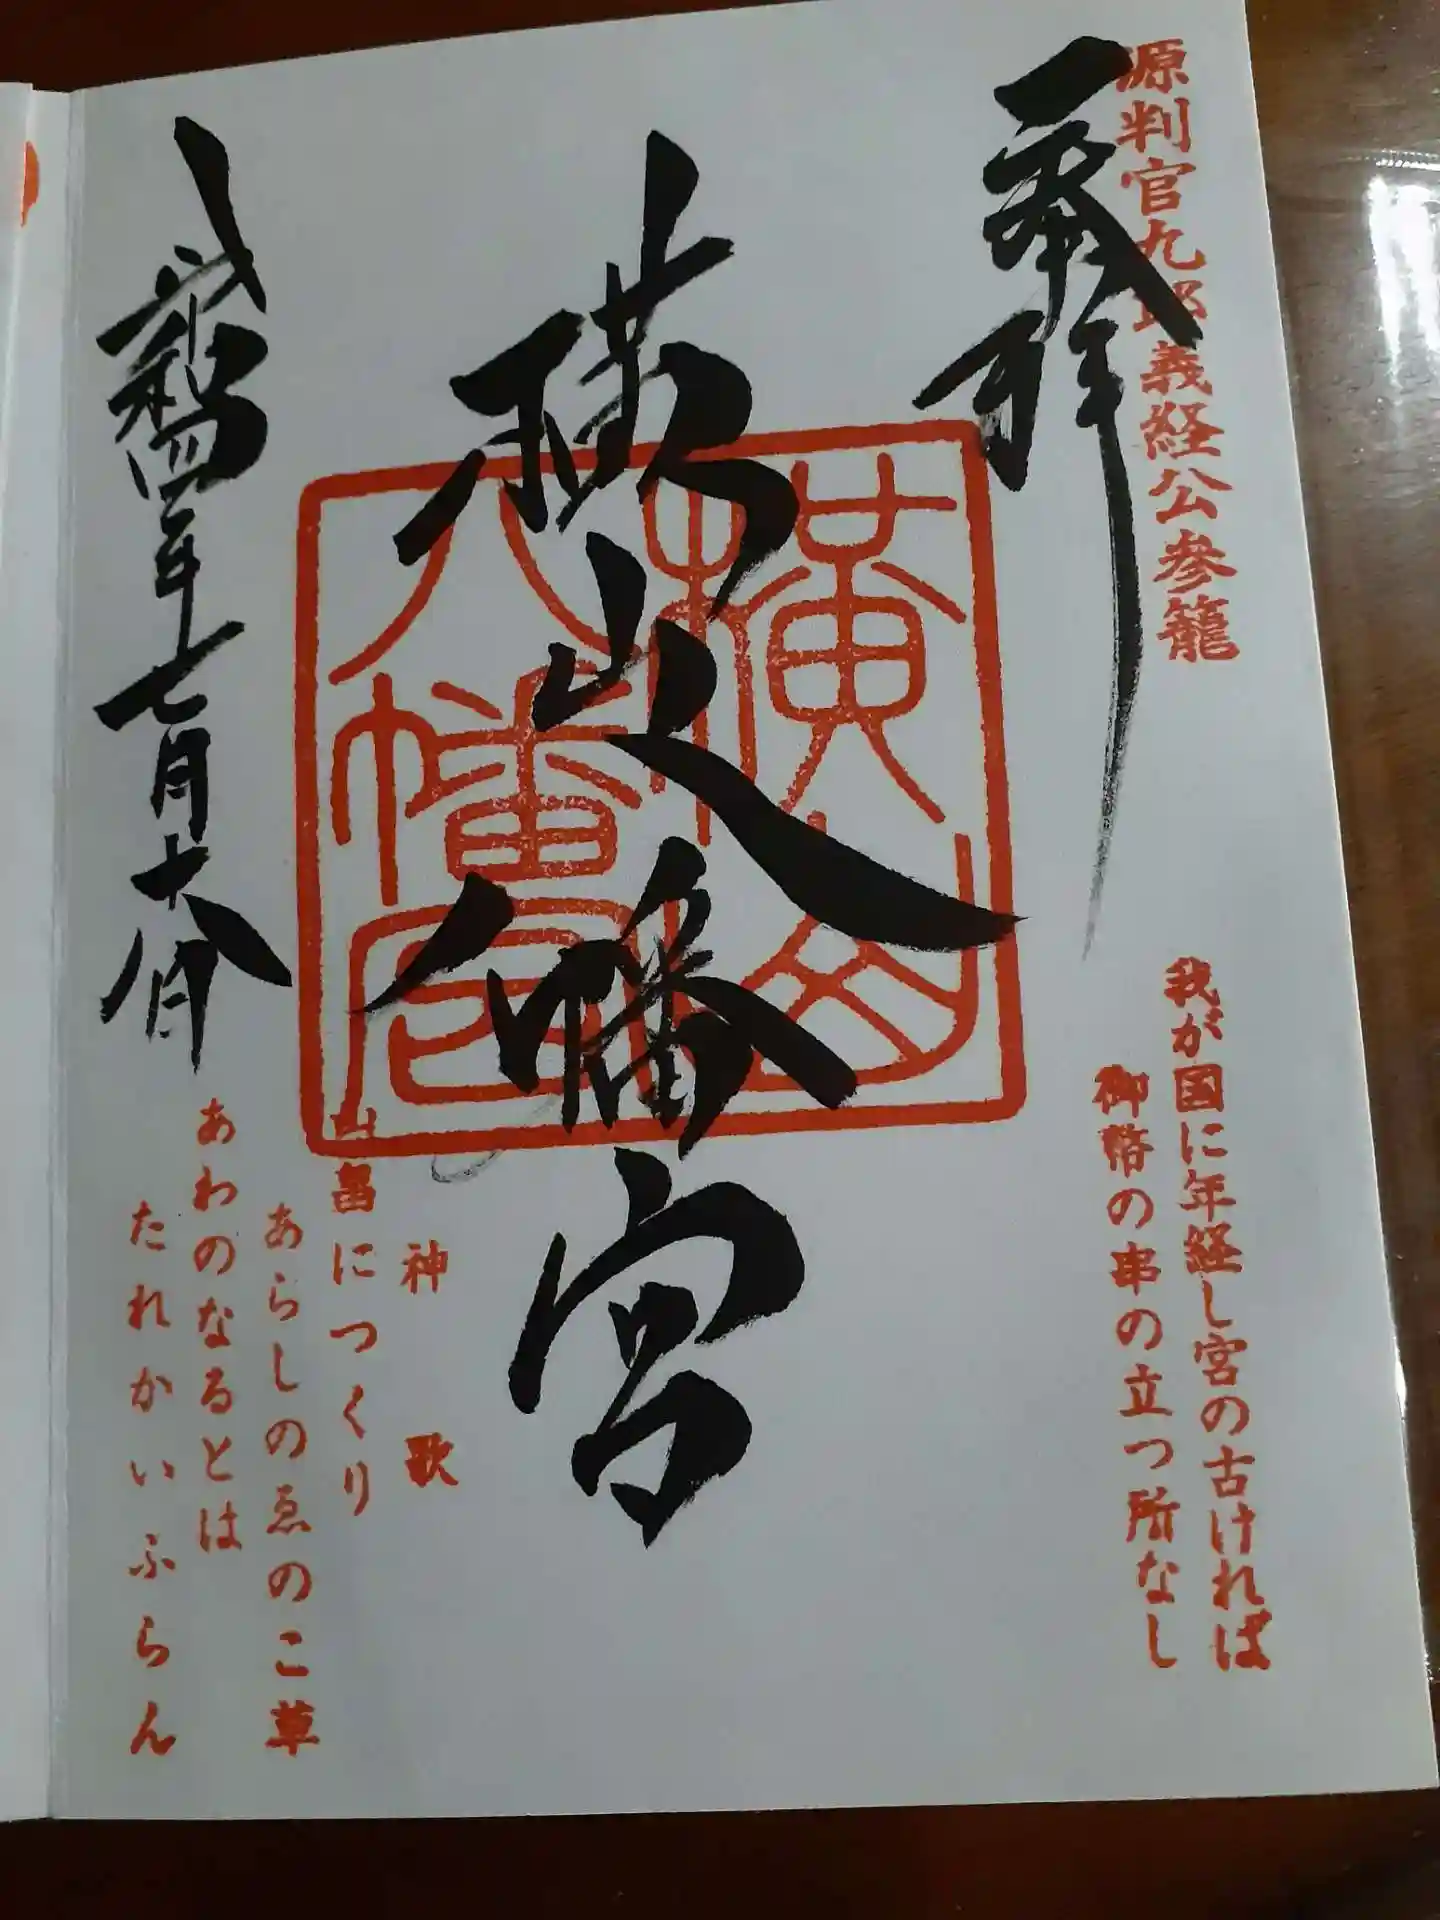 源判官九郎義経公参籠
奉拝
我が国に年経し宮の古ければ
御幣の串の立つ所なし
横山八幡宮
横山
八幡宮
神歌
山畠につくり
あらしのゑのこ草
あわのなるとは
たれかいふらん
令和四年七月十六日